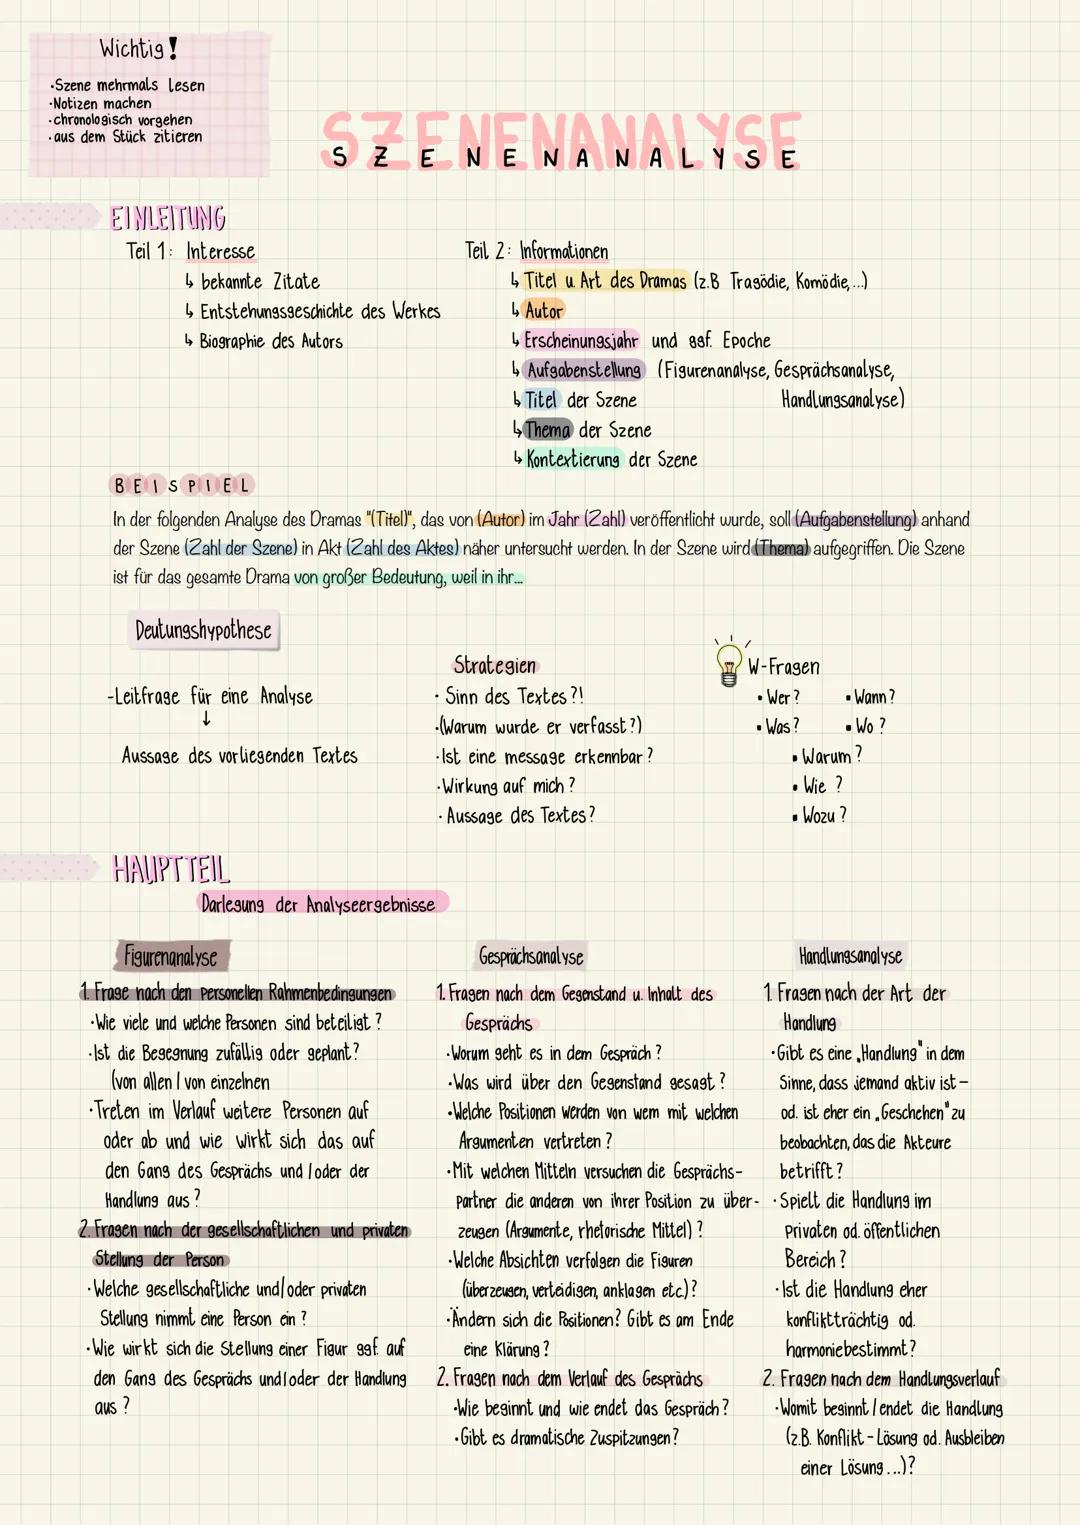 Wichtig!
·Szene mehrmals lesen
·Notizen machen
·chronologisch vorgehen
·aus dem Stück zitieren
SZENENANALYSE
SZENENANALYSE
EINLEITUNG
Teil 1: Interesse
↳ bekannte Zitate
↳ Entstehungsgeschichte des Werkes
↳ Biographie des Autors
Teil 2: Informationen
↳ Titel u. Art des Dramas (z.B Tragödie, Komödie,...)
↳ Autor
↳ Erscheinungsjahr und ggf. Epoche
↳ Aufgabenstellung (Figurenanalyse, Gesprächsanalyse,
Handlungsanalyse)
↳ Titel der Szene
↳ Thema der Szene
↳ Kontextierung der Szene
BEISPIEL
In der folgenden Analyse des Dramas "(Titel)", das von (Autor) im Jahr (Zahl) veröffentlicht wurde, soll (Aufgabenstellung) anhand
der Szene (Zahl der Szene) in Akt (Zahl des Aktes) näher untersucht werden. In der Szene wird (Thema) aufgegriffen. Die Szene
ist für das gesamte Drama von großer Bedeutung, weil in ihr...
Deutungshypothese
-Leitfrage für eine Analyse
↓
Aussage des vorliegenden Textes
Strategien
· Sinn des Textes?!
·(Warum wurde er verfasst?)
·Ist eine message erkennbar?
·Wirkung auf mich?
· Aussage des Textes?
W-Fragen
▪ Wer? ▪ Wann?
▪ Was? ▪ Wo?
▪ Warum?
▪ Wie?
▪ Wozu?
HAUPTTEIL
Darlegung der Analyseergebnisse
Figurenanalyse
1. Frage nach den personellen Rahmenbedingungen
·Wie viele und welche Personen sind beteiligt?
·Ist die Begegnung zufällig oder geplant?
(von allen / von einzelnen
·Treten im Verlauf weitere Personen auf
oder ab und wie wirkt sich das auf
den Gang des Gesprächs und/oder der
Handlung aus?
2. Fragen nach der gesellschaftlichen und privaten
Stellung der Person
·Welche gesellschaftliche und/oder privaten
Stellung nimmt eine Person ein?
·Wie wirkt sich die Stellung einer Figur ggf. auf
den Gang des Gesprächs und/oder der Handlung
aus?
Gesprächsanalyse
1. Fragen nach dem Gegenstand u. Inhalt des
Gesprächs
·Worum geht es in dem Gespräch?
·Was wird über den Gegenstand gesagt?
·Welche Positionen werden von wem mit welchen
Argumenten vertreten?
·Mit welchen Mitteln versuchen die Gesprächs-
partner die anderen von ihrer Position zu über-
zeugen (Argumente, rhetorische Mittel)?
·Welche Absichten verfolgen die Figuren
(überzeugen, verteidigen, anklagen etc.)?
·Ändern sich die Positionen? Gibt es am Ende
eine Klärung?
2. Fragen nach dem Verlauf des Gesprächs
·Wie beginnt und wie endet das Gespräch?
·Gibt es dramatische Zuspitzungen?
Handlungsanalyse
1. Fragen nach der Art der
Handlung
·Gibt es eine „Handlung" in dem
Sinne, dass jemand aktiv ist-
od. ist eher ein „Geschehen" zu
beobachten, das die Akteure
betrifft?
·Spielt die Handlung im
privaten od. öffentlichen
Bereich?
·Ist die Handlung eher
konfliktträchtig od.
harmoniebestimmt?
2. Fragen nach dem Handlungsverlauf
·Womit beginnt/endet die Handlung
(z.B. Konflikt-Lösung od. Ausbleiben
einer Lösung...)?